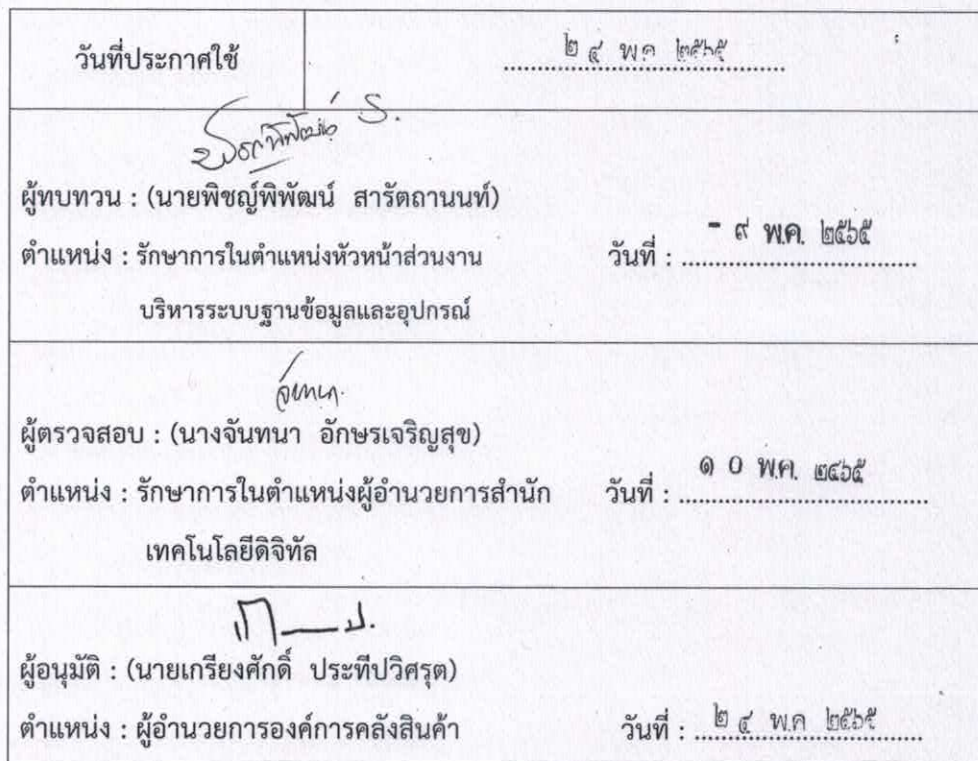 วันที่ประกาศใช้ ๒๔ พ.ค. ๒๕๖๕
ผู้ทบทวน : (นายพิชญ์พิพัฒน์ สารัตถานนท์)
ตำแหน่ง : รักษาการในตำแหน่งหัวหน้าส่วนงาน วันที่ : - ๙ พ.ค. ๒๕๖๕
บริหารระบบฐานข้อมูลและอุปกรณ์
จันทนา
ผู้ตรวจสอบ : (นางจันทนา อักษรเจริญสุข)
ตำแหน่ง : รักษาการในตำแหน่งผู้อำนวยการสำนัก วันที่ : ๑๐ พ.ค. ๒๕๖๕
เทคโนโลยีดิจิทัล
ผู้อนุมัติ : (นายเกรียงศักดิ์ ประทีปวิศรุต)
ตำแหน่ง : ผู้อำนวยการองค์การคลังสินค้า วันที่ : ๒๔ พ.ค. ๒๕๖๕